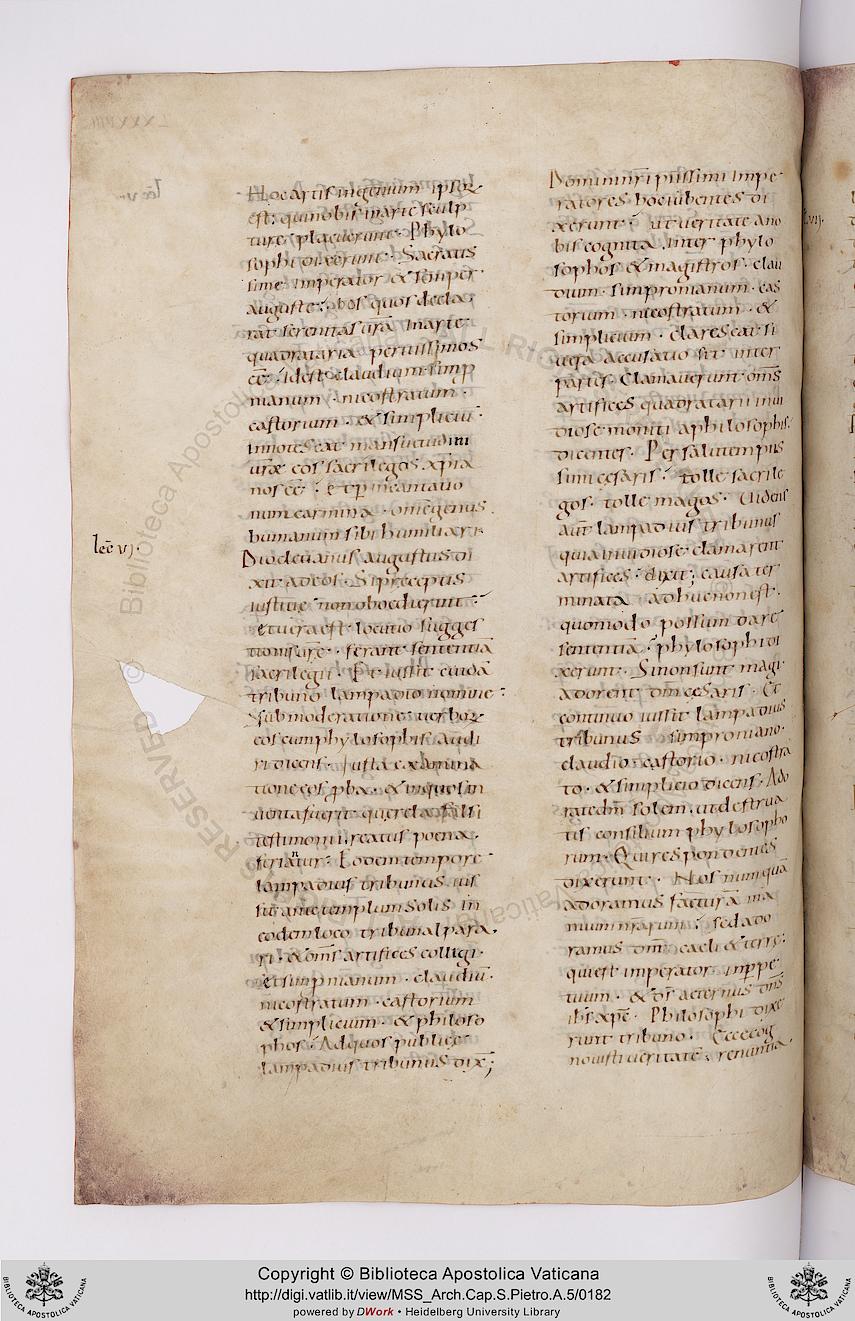 Hoc artis ingenium ipsoꝝ
est; qui nobis in arte sculp
ture placuerunt · Phylo
sophi dixerunt · Sacratis
sime imperator & semper
auguste; hos quos decla
rat serenitas ur̄a in arte
quadrataria peritissimos
ēē; idest claudium simp
nianum · nicostratum ·
castorium · & simpliciū ·
innotescat mansuetudini
ur̄ae eos sacrilegos xp̄ia
nos ēē; et p incantatio
num carmina · omē genus
humanum sibi humiliari
lec̄ vj·
Diocletianus augustus di
xit ad eos · Si preceptis
iustitie non oboedierint
et uera est locutio sugges
tionis ure · ferant sententiā
sacrilegii · Et iussit cuidā
tribuno lampadio nomine
sub moderatione uerboꝝ
eos cum phylosophis audi
ri dicens · Iusta examina
tione eos pba · & in quo in
uenta fuerit querela falsi
testimonii reatus poena
feriatur · Eodem tempore
lampadius tribunus ius
sit ante templum solis in
eodem loco tribunal para
ri · & om̄s artifices colligi ·
et simpnianum · claudiū ·
nicostratum · castorium
& simplicium · & philoso
phos · Ad quos publice
lampadius tribunus dix̄;
Domini nr̄i piissimi impe
ratores hoc iubentes di
xerunt · ut ueritate a uo
bis cognita · inter phylo
sophos & magistros · clau
dium · simpronianum · cas
torium · nicostratum · &
simplicium · clarescat si
uera accusatio sit inter
partes · Clamauerunt om̄s
artifices quadratarii inui
diose moniti a philosophis
dicentes · Per salutem piis
simi cesaris; tolle sacrile
gos · tolle magos · Uidens
aūt lampadius tribunus
quia inuidiose clamarent
artifices · dixit; causa ter
minata adhuc non est ·
quomodo possum dare
sententiā; phylosophi di
xerunt · Si non sunt magi
adorent dm̄ cesaris · Et
continuo iussit lampadius
tribunus simproniano ·
claudio · castorio · nicostra
to · & simplicio dicens · Ado
rate dm̄ solem · ut destrua
tis consilium phylosopho
rum · Qui respondentes
dixerunt · Nos numquā
adoramus facturā ma
nuum nr̄arum; sed ado
ramus dm̄ caeli & terre ·
qui est imperator in ppe
tuum · & dr̄ aeternus dn̄s
ih̄s xp̄c · Philosophi dixe
runt tribuno · Ecce cog
nouisti ueritatē; renuntia
Copyright © Biblioteca Apostolica Vaticana
http://digi.vatlib.it/view/MSS_Arch.Cap.S.Pietro.A.5/0182
powered by DWork • Heidelberg University Library